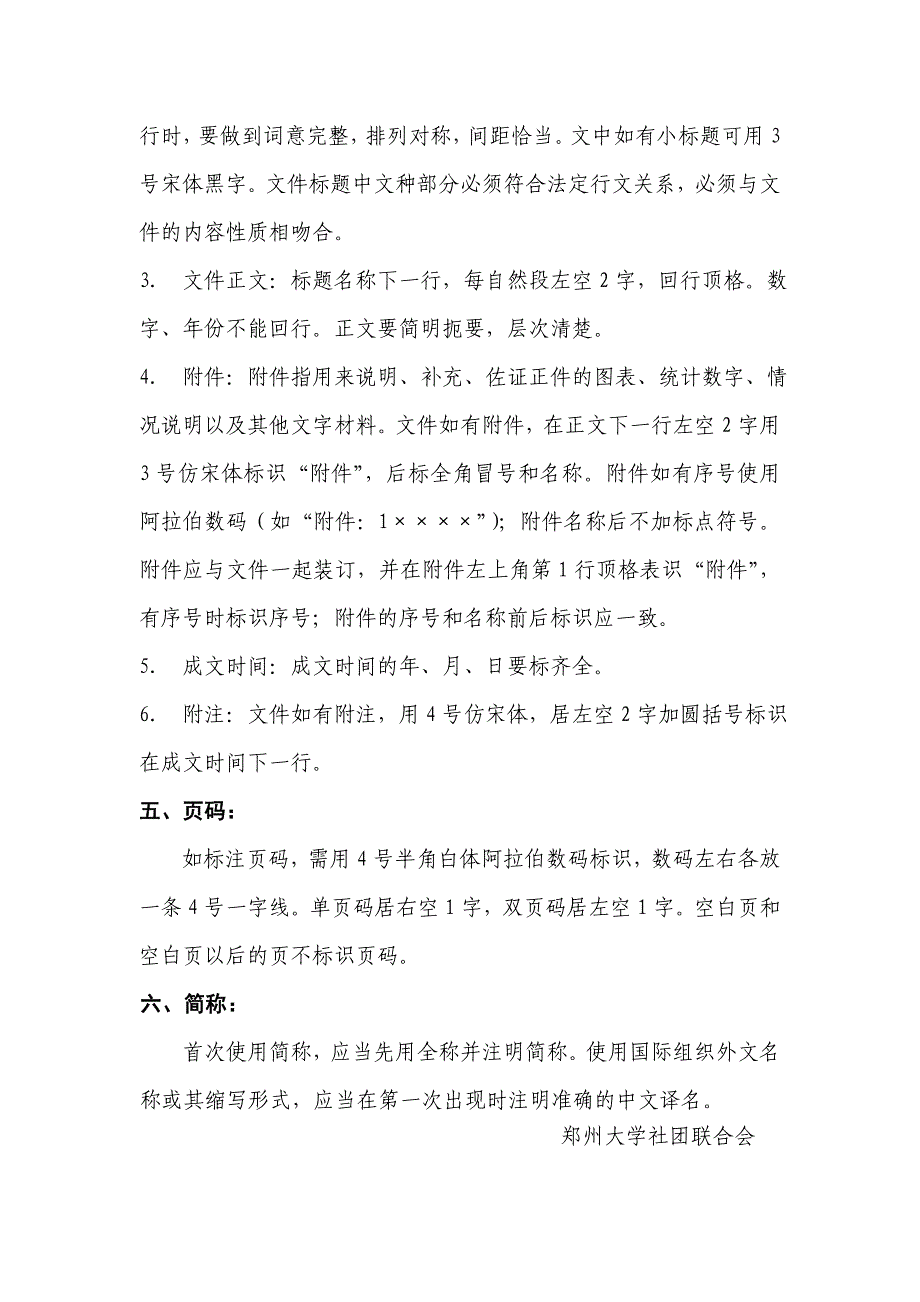 行时，要做到词意完整，排列对称，间距恰当。文中如有小标题可用 3
号宋体黑字。文件标题中文种部分必须符合法定行文关系，必须与文
件的内容性质相吻合。
3. 文件正文：标题名称下一行，每自然段左空 2 字，回行顶格。数
字、年份不能回行。正文要简明扼要，层次清楚。
4. 附件：附件指用来说明、补充、佐证正件的图表、统计数字、情
况说明以及其他文字材料。文件如有附件，在正文下一行左空 2 字用
3 号仿宋体标识“附件”，后标全角冒号和名称。附件如有序号使用
阿拉伯数码（如“附件：1××××”）；附件名称后不加标点符号。
附件应与文件一起装订，并在附件左上角第 1 行顶格表识“附件”，
有序号时标识序号；附件的序号和名称前后标识应一致。
5. 成文时间：成文时间的年、月、日要标齐全。
6. 附注：文件如有附注，用 4 号仿宋体，居左空 2 字加圆括号标识
在成文时间下一行。
五、页码：
如标注页码，需用 4 号半角白体阿拉伯数码标识，数码左右各放
一条 4 号一字线。单页码居右空 1 字，双页码居左空 1 字。空白页和
空白页以后的页不标识页码。
六、简称：
首次使用简称，应当先用全称并注明简称。使用国际组织外文名
称或其缩写形式，应当在第一次出现时注明准确的中文译名。
郑州大学社团联合会